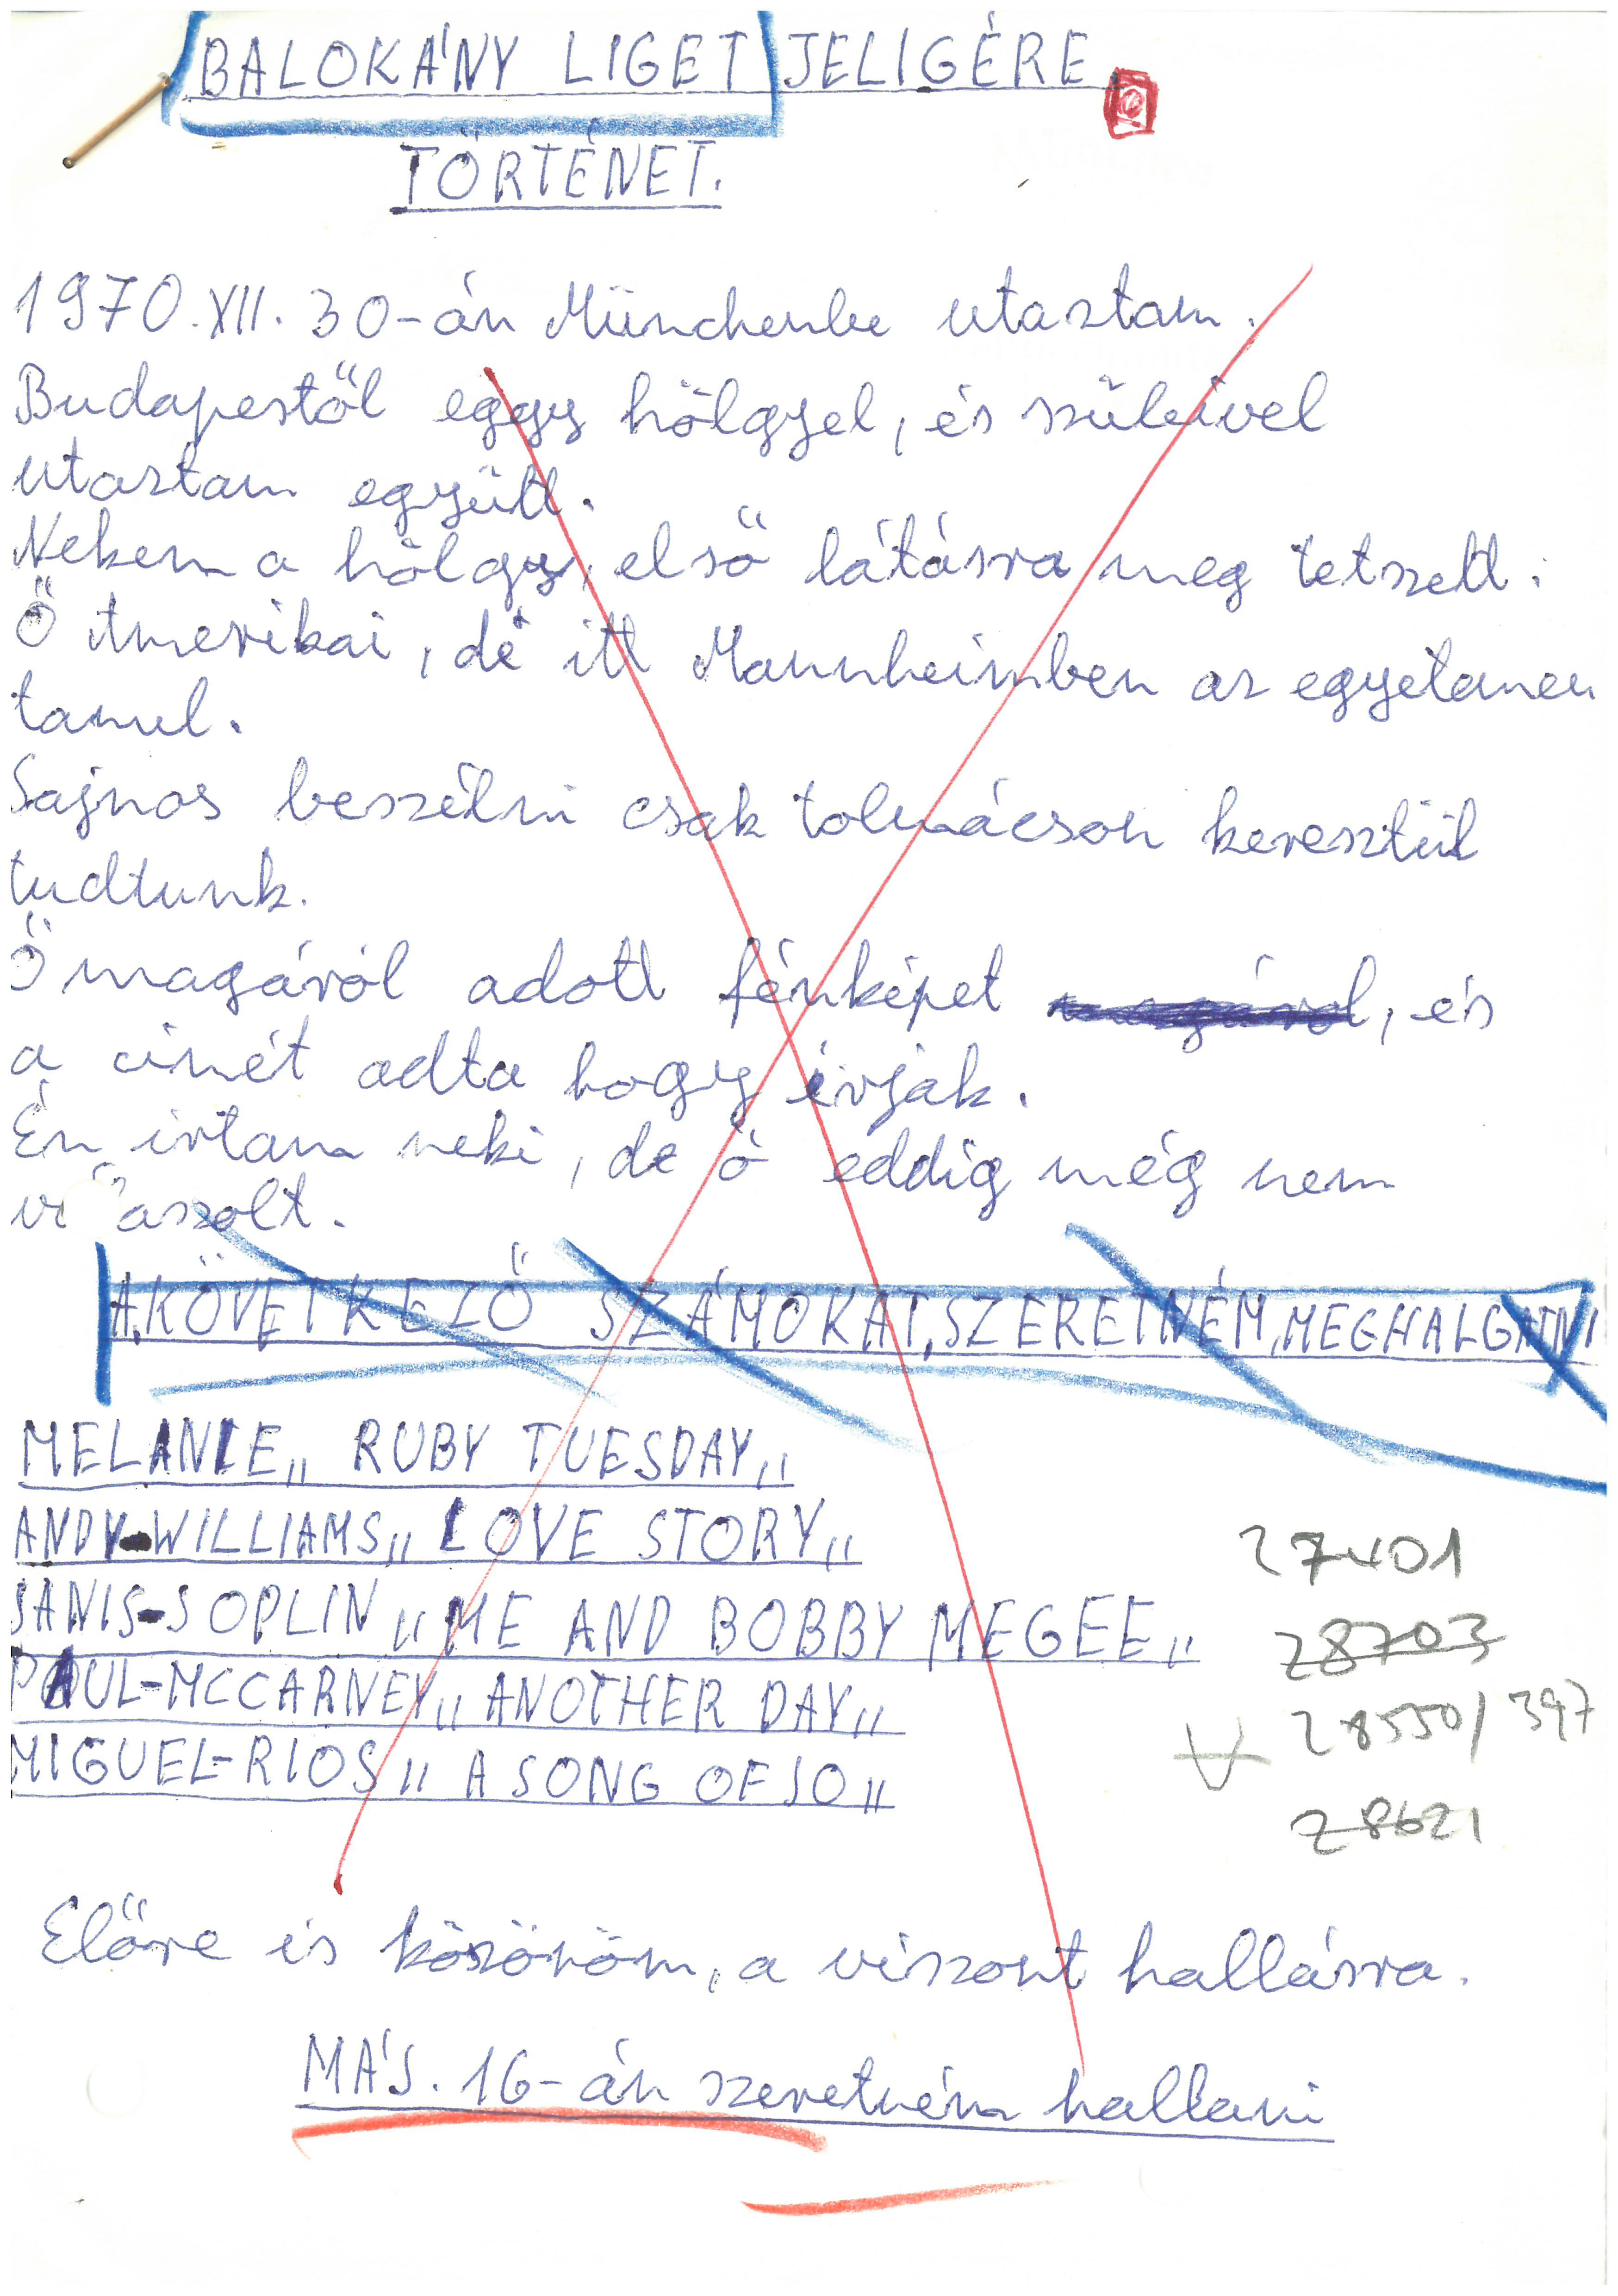 BALOKÁNY LIGET JELIGÉRE.
TÖRTÉNET.
1970.XII. 30-án Münchenbe utaztam.
Budapestől eggy hölgyel, és szüleivel
utaztam együtt.
Nekem a hölgy, első látásra meg tetszett.
Ő Amerikai, de itt Mannheimben az egyetemen
tanul.
Sajnos beszélni csak tolmácson keresztül
tudtunk.
Ő magáról adott fénképet magárol, és
a cimét adta hogy írjak.
Én irtam neki, de ő eddig még nem
vá aszolt.
A KÖVETKEZŐ SZÁMOKAT, SZERETNÉM, MEGHALGATNI
MELANIE„ RUBY TUESDAY„
ANDY-WILLIAMS„ LOVE STORY„
JANIS-JOPLIN „ME AND BOBBY MEGEE„
27401
28703
PAUL-MCCARNEY„ ANOTHER DAY„
28550/397
MIGUEL-RIOS„ A SONG OF JO„
28621
Előre is köszönöm, a viszont hallásra.
MÁJ. 16-án szeretném hallani